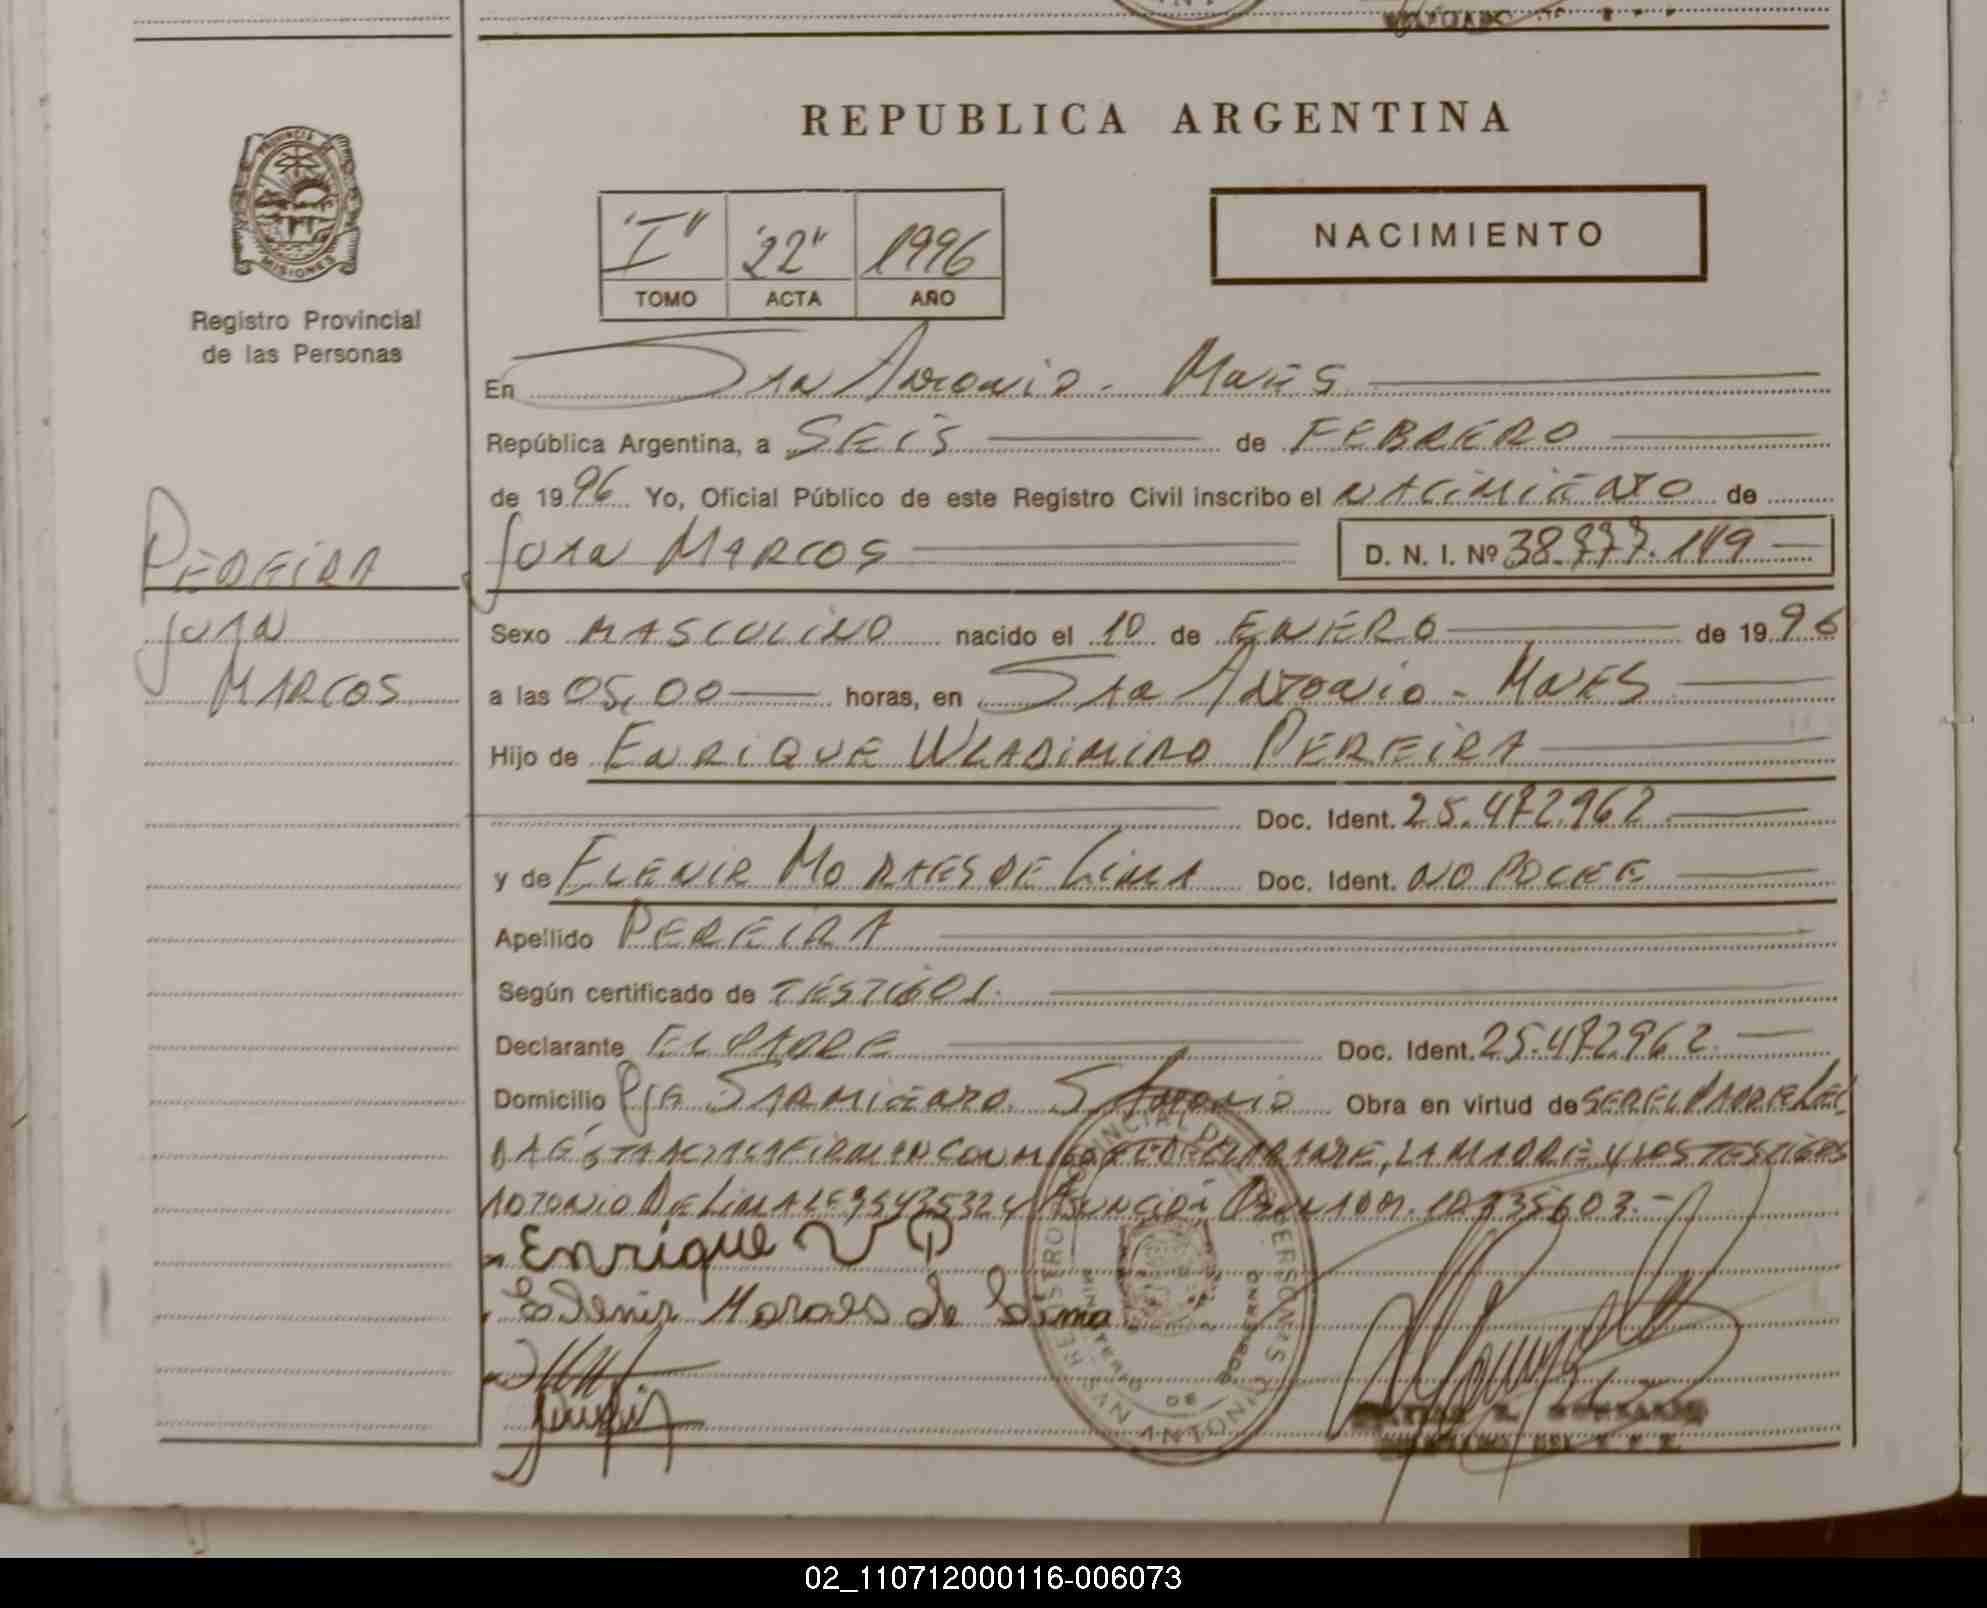 REPUBLICA ARGENTINA
PROVINCIA DE
MISIONES
Registro Provincial
de las Personas
"I" "22" 1996
TOMO ACTA AÑO
NACIMIENTO
En San Antonio - Mnes
República Argentina, a SEIS de FEBRERO
de 1996 Yo, Oficial Público de este Registro Civil inscribo el NACIMIENTO de
PEREIRA
JUAN
MARCOS
JUAN MARCOS D. N. I. Nº 38.777.119
Sexo MASCULINO nacido el 10 de ENERO de 1996
a las 05,00 horas, en San Antonio - MNES
Hijo de ENRIQUE WLADIMIRO PEREIRA
Doc. Ident. 25.472.962
y de ELENIR MORAES DE LIMA Doc. Ident. NO POCEE
Apellido PEREIRA
Según certificado de TESTIGOS.
Declarante EL PADRE Doc. Ident. 25.472.962
Domicilio SARMIENTO S. Antonio Obra en virtud de SER EL PADRE LEI
DA ESTA ACTA LA FIRMAN CONMIGO EL DECLARANTE, LA MADRE Y LOS TESTIGOS
ANTONIO DE LIMA Y ASUNCION
Enrique V P
Elenir Moraes de Lima
REGISTRO PROVINCIAL DE LAS PERSONAS
MINISTERIO DE GOBIERNO
SAN ANTONIO
02_110712000116-006073